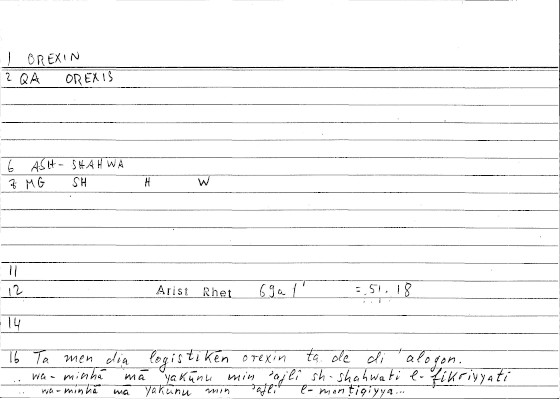 1 OREXIN
2 QA OREXIS
6 ASH-SHAHWA
8 MG SH H W
11
12 Arist Rhet 69a1' =.51.18
14
16 Ta men dia logistikēn orexin ta de di 'alogon.
.. wa-minhā mā yakūnu min 'ajli sh-shahwati l-fikriyyati
.. wa-minhā mā yakūnu min 'ajli l-manṭiqiyya...